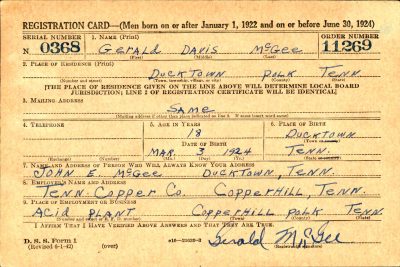 REGISTRATION CARD—(Men born on or after January 1, 1922 and on or before June 30, 1924)
SERIAL NUMBER 1. NAME (Print) ORDER NUMBER
N 0368 GERALD DAVIS McGEE 11269
(First) (Middle) (Last)
2. PLACE OF RESIDENCE (Print)
DUCKTOWN POLK TENN.
(Number and street) (Town, township, village, or city) (County) (State)
[THE PLACE OF RESIDENCE GIVEN ON THE LINE ABOVE WILL DETERMINE LOCAL BOARD
JURISDICTION; LINE 2 OF REGISTRATION CERTIFICATE WILL BE IDENTICAL]
3. MAILING ADDRESS
SAME
(Mailing address if other than place indicated on line 2. If same insert word same)
4. TELEPHONE 5. AGE IN YEARS 6. PLACE OF BIRTH
18 DUCKTOWN
DATE OF BIRTH (Town or county)
MAR. 3 1924 TENN.
(Exchange) (Number) (Mo.) (Day) (Yr.) (State or country)
7. NAME AND ADDRESS OF PERSON WHO WILL ALWAYS KNOW YOUR ADDRESS
JOHN E. McGEE DUCKTOWN, TENN.
8. EMPLOYER'S NAME AND ADDRESS
TENN. COPPER CO. COPPERHILL, TENN.
9. PLACE OF EMPLOYMENT OR BUSINESS
ACID PLANT COPPERHILL POLK TENN.
(Number and street or R. F. D. number) (Town) (County) (State)
I AFFIRM THAT I HAVE VERIFIED ABOVE ANSWERS AND THAT THEY ARE TRUE.
D. S. S. Form 1
(Revised 6-1-42) (over) Gerald McGee
(Registrant's signature)